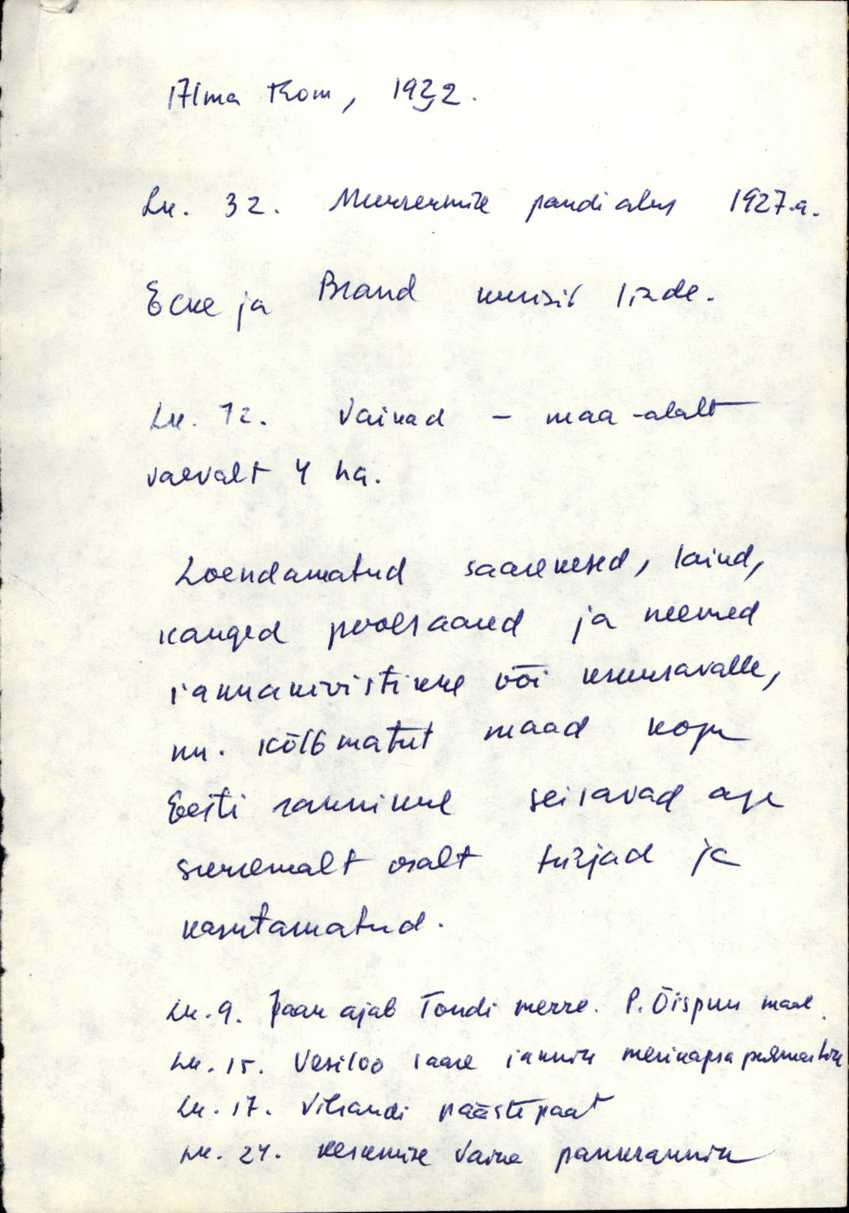 Alma Tom, 1932.
Lk. 32. pandi alus 1927.a.
Ecke ja Brand linde.
Lk. 12. Vaikad – maa-alalt
vaevalt 4 ha.
Loendamatud saarekesed, laiud,
kauged poolsaared ja neemed
rannakivistikke või kruusavalle,
nn. kõlbmatut maad kogu
Eesti rannikul seisavad aga
suuremalt osalt tühjad ja
kasutamatud.
Lk. 9. Jaan ajab Tondi merre. P. Õispuu maal.
Lk. 15. Vesiloo saare rannik merikapsa puhmastik
Lk. 17. Vilsandi päästepaat
Lk. 24. Keskmise Vaika pankrannik